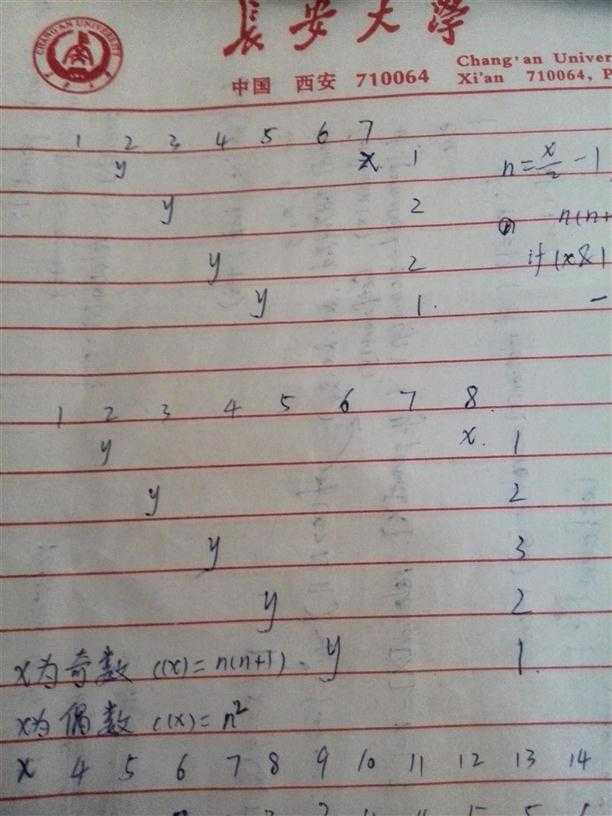 CHANG'AN UNIVERSITY
長安大學
中国 西安 710064
Chang'an Univer
Xi'an 710064, P
1 2 3 4 5 6 7
y x 1 n = x/2 - 1
y 2 n(n+
y 2 if (x&1
y 1. -
1 2 3 4 5 6 7 8
y x. 1
y 2
y 3
y 2
x为奇数 c(x) = n(n+1). y 1.
x为偶数 c(x) = n²
x 4 5 6 7 8 9 10 11 12 13 14